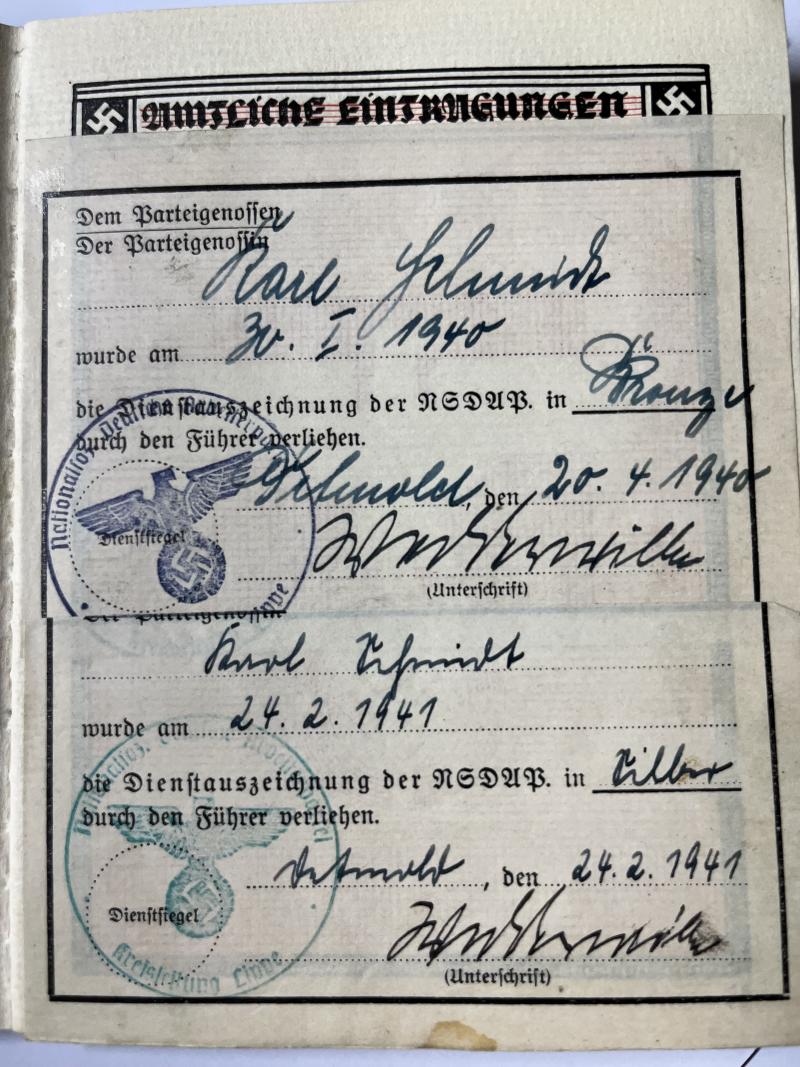 AMTLICHE EINTRAGUNGEN
Dem Parteigenossen
Der Parteigenossin
Karl Schmidt
wurde am 30. I. 1940
die Dienstauszeichnung der NSDAP. in Bronze
durch den Führer verliehen.
Detmold, den 20. 4. 1940
Dienstsiegel
(Unterschrift)
Der Parteigenossin
Karl Schmidt
wurde am 24. 2. 1941
die Dienstauszeichnung der NSDAP. in Silber
durch den Führer verliehen.
Detmold, den 24. 2. 1941
Dienstsiegel
Kreisleitung Lippe
(Unterschrift)